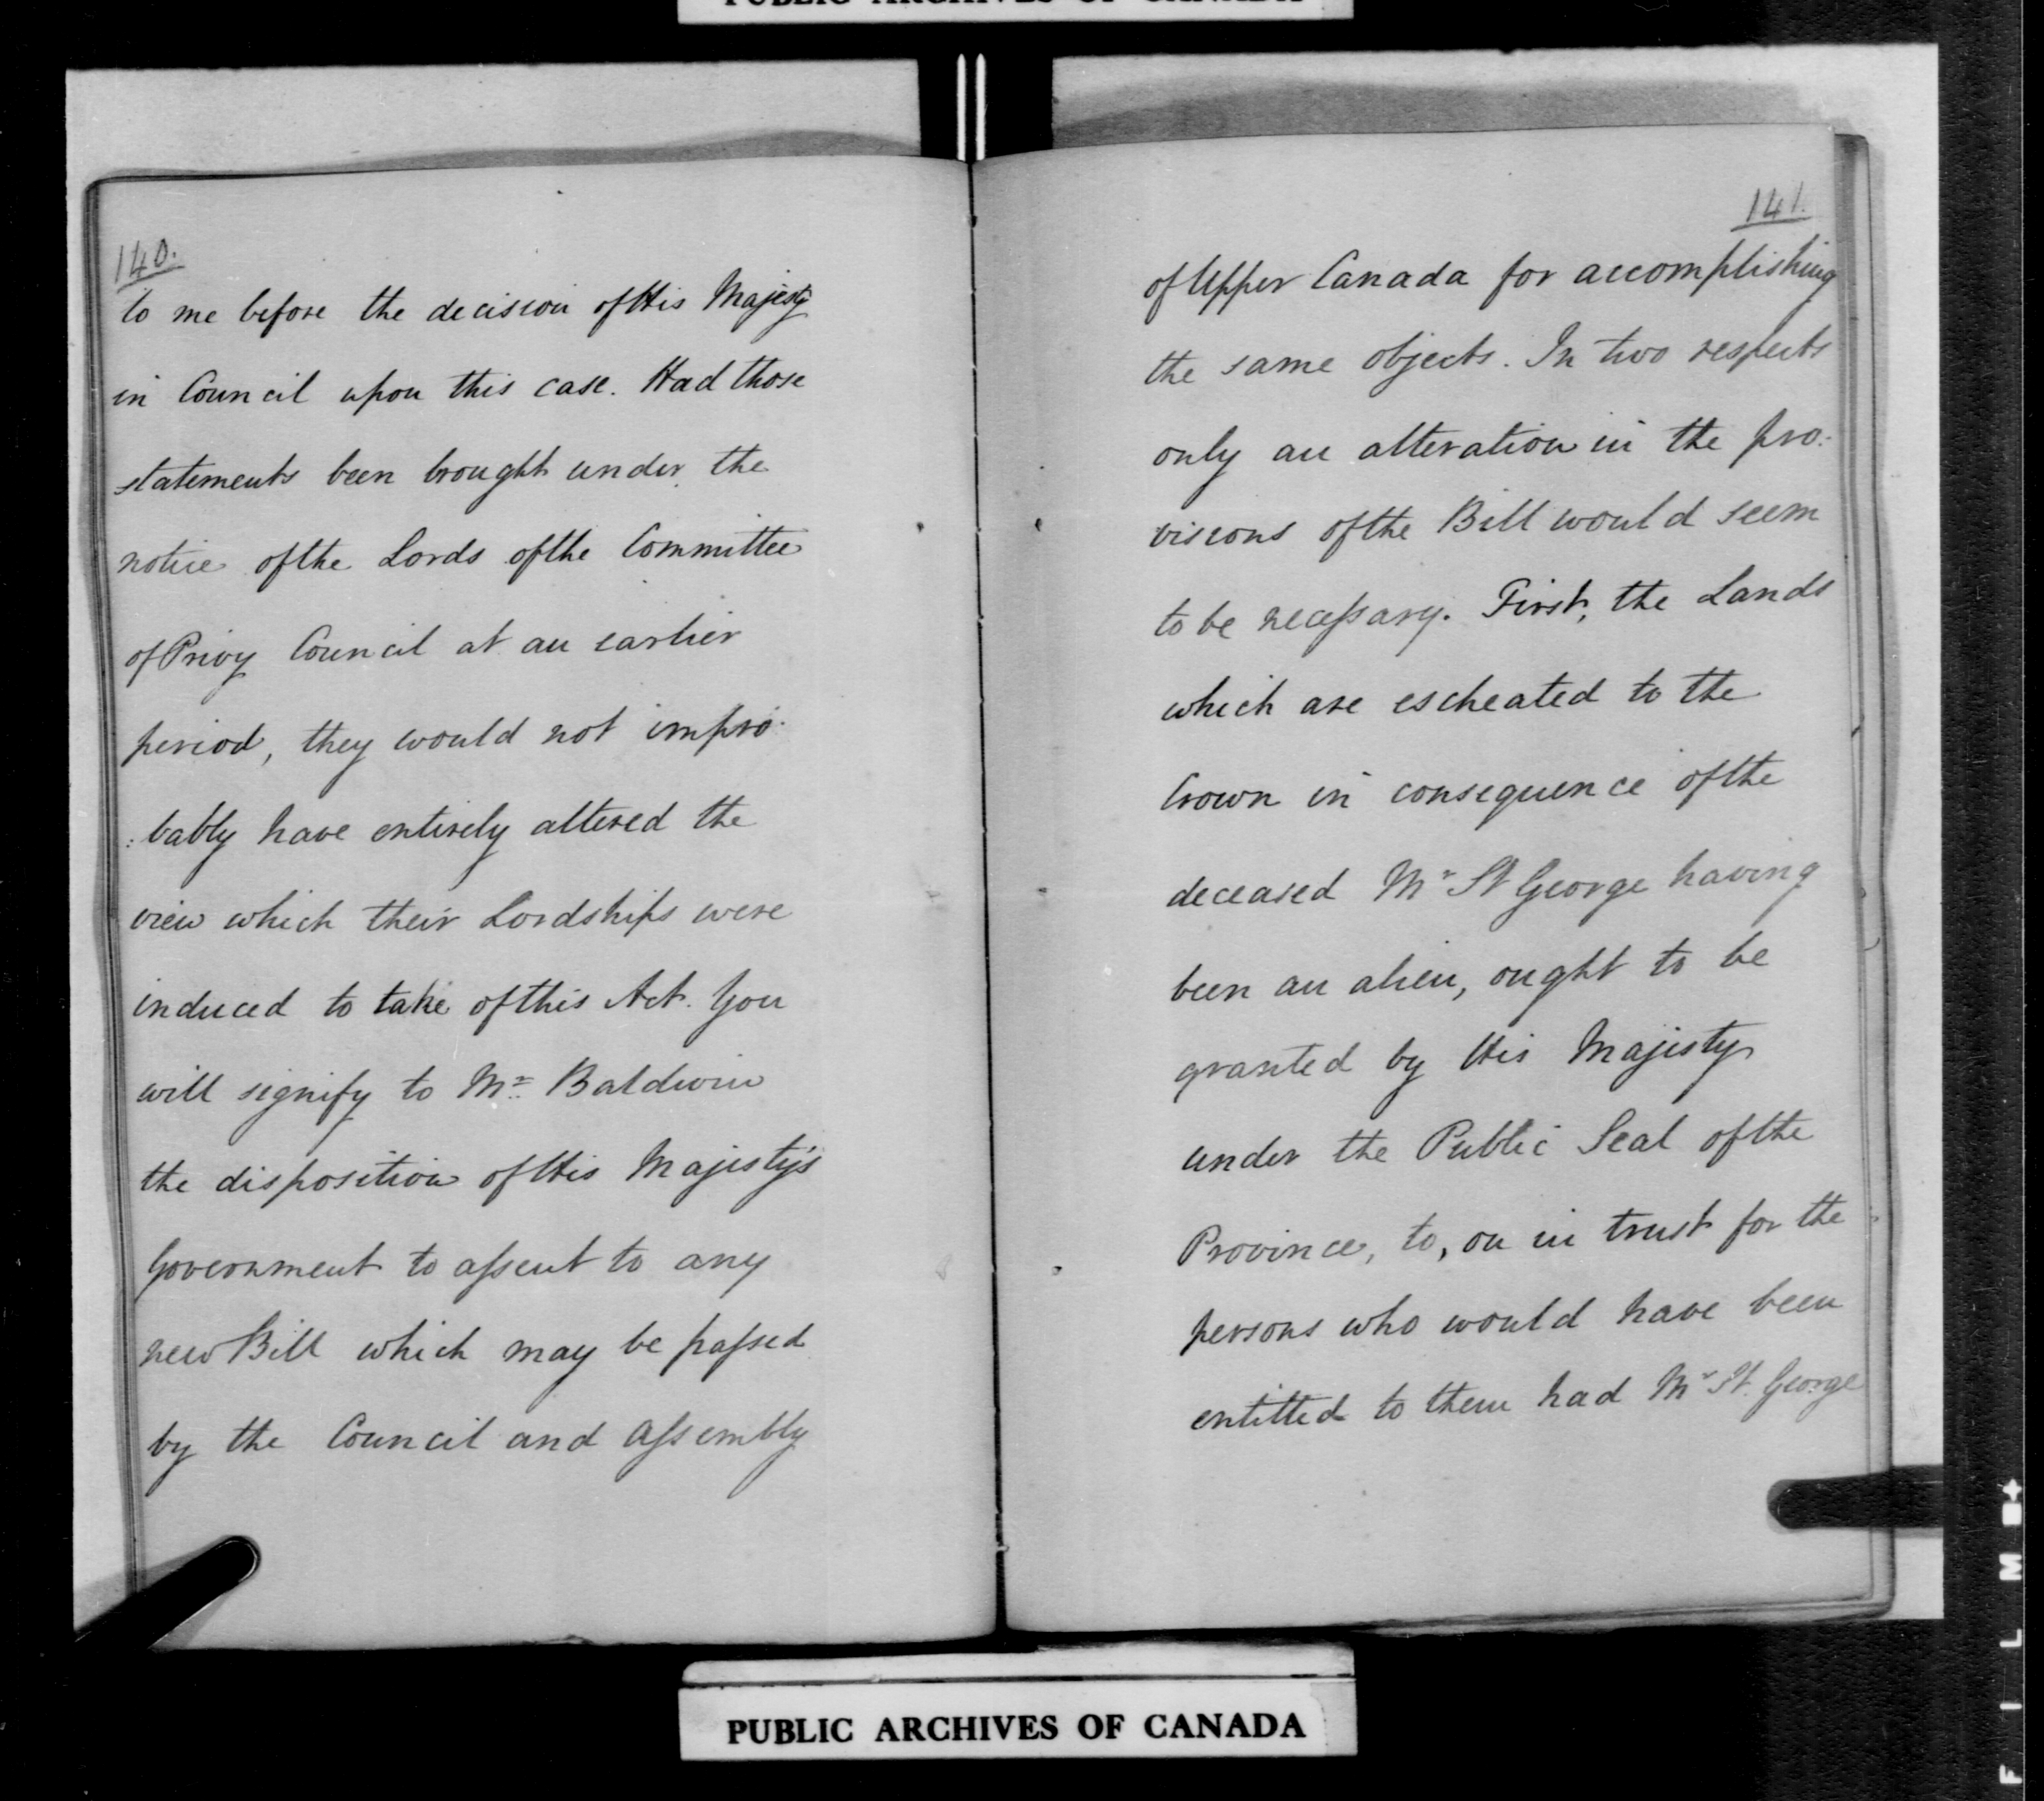 PUBLIC ARCHIVES OF CANADA
140.
to me before the decision of His Majesty
in Council upon this case. Had those
statements been brought under the
notice of the Lords of the Committee
of Privy Council at an earlier
period, they would not impro-
:bably have entirely altered the
view which their Lordships were
induced to take of this Act. You
will signify to Mr. Baldwin
the disposition of His Majesty's
Government to assent to any
new Bill which may be passed
by the Council and Assembly
141.
of Upper Canada for accomplishing
the same objects. In two respects
only an alteration in the pro-
visions of the Bill would seem
to be necessary. First, the Lands
which are escheated to the
Crown in consequence of the
deceased Mr St George having
been an alien, ought to be
granted by His Majesty
under the Public Seal of the
Province, to, or in trust for the
persons who would have been
entitled to them had Mr St. George
PUBLIC ARCHIVES OF CANADA
FILMED